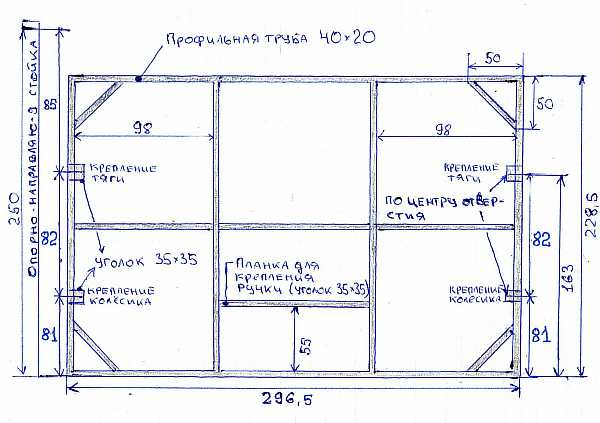 ПРОФИЛЬНАЯ ТРУБА 40×20
50
50
ОПОРНО-НАПРАВЛЯЮ-Я СТОЙКА
85
250
98
98
КРЕПЛЕНИЕ
ТЯГИ
КРЕПЛЕНИЕ
ТЯГИ
ПО ЦЕНТРУ ОТВЕР-
СТИЯ
228,5
82
УГОЛОК 35×35
ПЛАНКА ДЛЯ
КРЕПЛЕНИЯ
РУЧКИ (УГОЛОК 35×35)
82
163
КРЕПЛЕНИЕ
КОЛЁСИКА
КРЕПЛЕНИЕ
КОЛЕСИКА
81
55
81
296,5